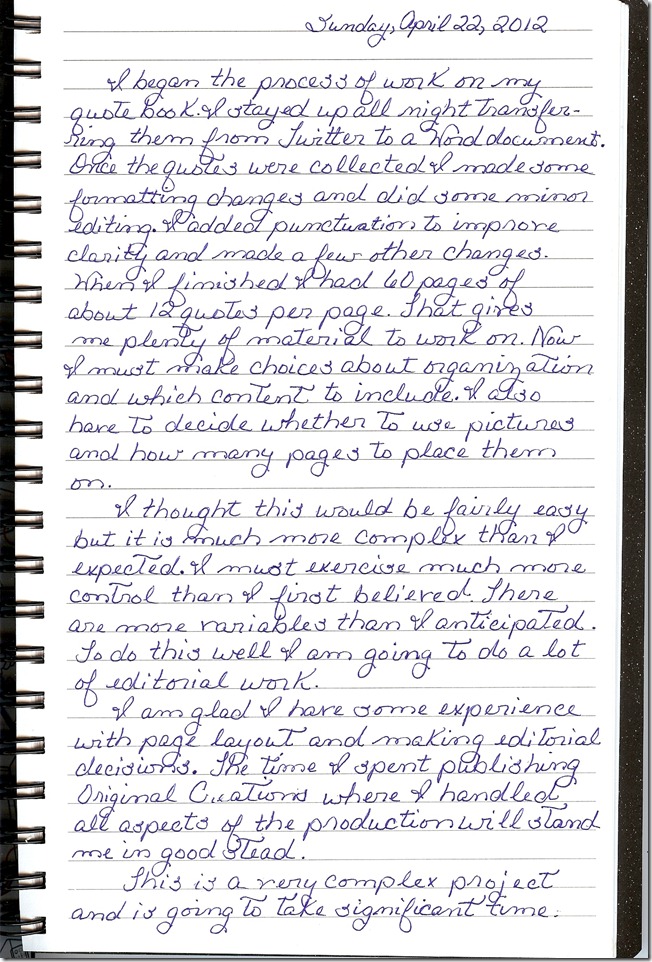 Sunday, April 22, 2012
I began the process of work on my
quote book. I stayed up all night transfer-
ring them from Twitter to a Word document.
Once the quotes were collected I made some
formatting changes and did some minor
editing. I added punctuation to improve
clarity and made a few other changes.
When I finished I had 60 pages of
about 12 quotes per page. That gives
me plenty of material to work on. Now
I must make choices about organization
and which content to include. I also
have to decide whether to use pictures
and how many pages to place them
on.
I thought this would be fairly easy
but it is much more complex than I
expected. I must exercise much more
control than I first believed. There
are more variables than I anticipated.
To do this well I am going to do a lot
of editorial work.
I am glad I have some experience
with page layout and making editorial
decisions. The time I spent publishing
Original Creations where I handled
all aspects of the production will stand
me in good stead.
This is a very complex project
and is going to take significant time.